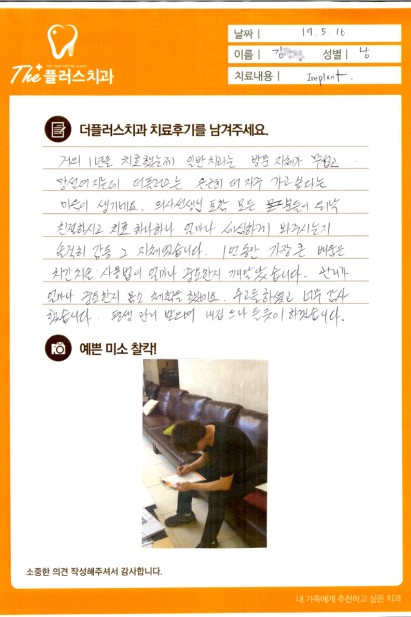 The 플러스치과
날짜 | 19. 5. 16
이름 | 김 성별 | 남
치료내용 | Implant.
더플러스치과 치료후기를 남겨주세요.
거의 1년을 치료했는데 일반치과는 방문 자체가 무섭고
망설여지는데 더플러스는 은근히 더 자주 가고 싶다는
마음이 생기네요. 의사선생님 포함 모든 분들이 워낙
친절하시고 치료 하나하나 얼마나 세심하게 봐주시는지
솔직히 감동 그 자체였습니다. 1년동안 가장 큰 배움은
치간치솔 사용법이 얼마나 중요한지 깨달았습니다. 관리가
얼마나 중요한지 몸소 체험을 했네요. 수고들하셨고 너무 감사
했습니다. 평생 관리 받으며 내집 드나들듯이 하겠습니다.
예쁜 미소 찰칵!
소중한 의견 작성해주셔서 감사합니다.
내 가족에게 추천하고 싶은 치과